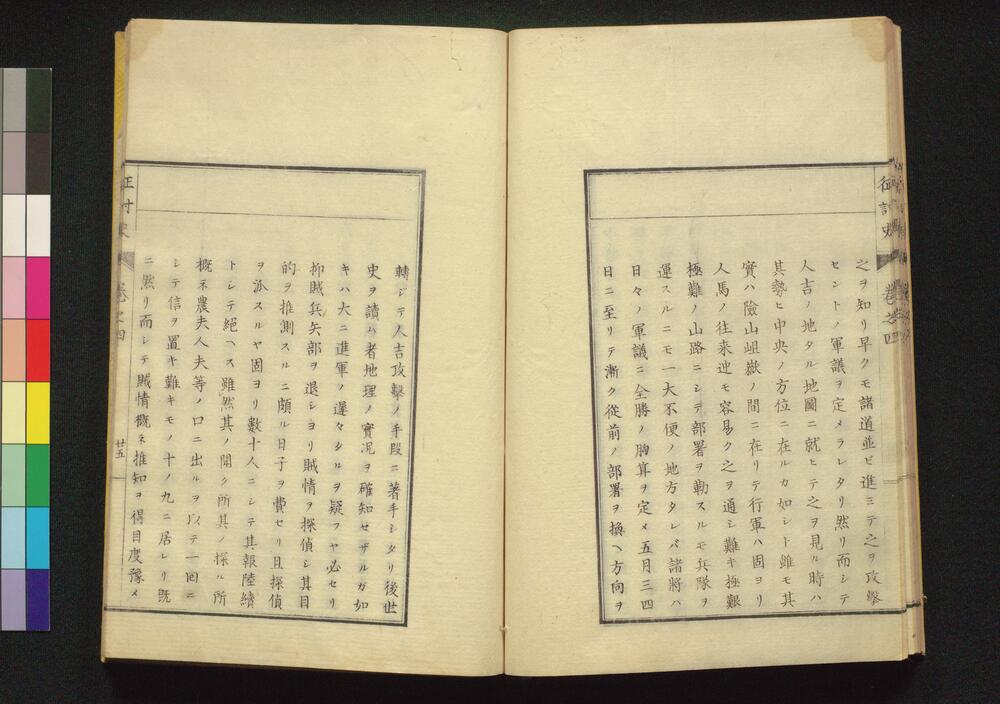 征討史 巻之四
之ヲ知リ早クモ諸道並ビ進ミテ之ヲ攻擊
セントノ軍議ヲ定メラレタリ然リ而シテ
人吉ノ地タル地圖ニ就ヒテ之ヲ見ル時ハ
其勢ヒ中央ノ方位ニ在ルカ如シト雖モ其
實ハ險山岨嶽ノ間ニ在リテ行軍ハ固ヨリ
人馬ノ往来迚モ容易ク之ヲ通シ難キ極艱
極難ノ山路ニシテ部署ヲ勒スルモ兵隊ヲ
運スルニモ一大不便ノ地方タレバ諸將ハ
日々ノ軍議ニ全勝ノ胸算ヲ定メ五月三四
日ニ至リテ漸ク從前ノ部署ヲ換ヘ方向ヲ
轉ジテ人吉攻擊ノ手段ニ著手シタリ後世
史ヲ讀ム者地理ノ實况ヲ確知セザルガ如
キハ大ニ進軍ノ遲々タルヲ疑フヤ必セリ
抑賊兵矢部ヲ退シヨリ賊情ヲ探偵シ其目
的ヲ推測スルニ頗ル日子ヲ費セリ且探偵
ヲ派スルヤ固ヨリ數十人ニシテ其報陸續
トシテ絕ヘス雖然其ノ聞ク所其ノ探ル所
概ネ農夫人夫等ノ口ニ出ルヲ以テ一回ニ
シテ信ヲ置キ難キモノ十ノ九ニ居レリ既
ニ然リ而シテ賊情概ネ推知ヲ得目度豫メ
征討史 巻之四 廿五